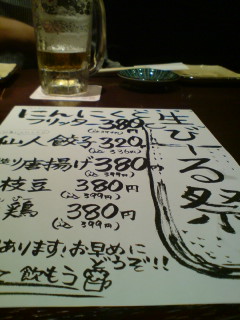 生びーる祭
にんにく 380円
仙人餃子 320
(込336円)
唐揚げ 380円
(込399円)
枝豆 380円
(込399円)
鶏 380円
(込399円)
あります!お早めに
どうぞ!!
飲もう